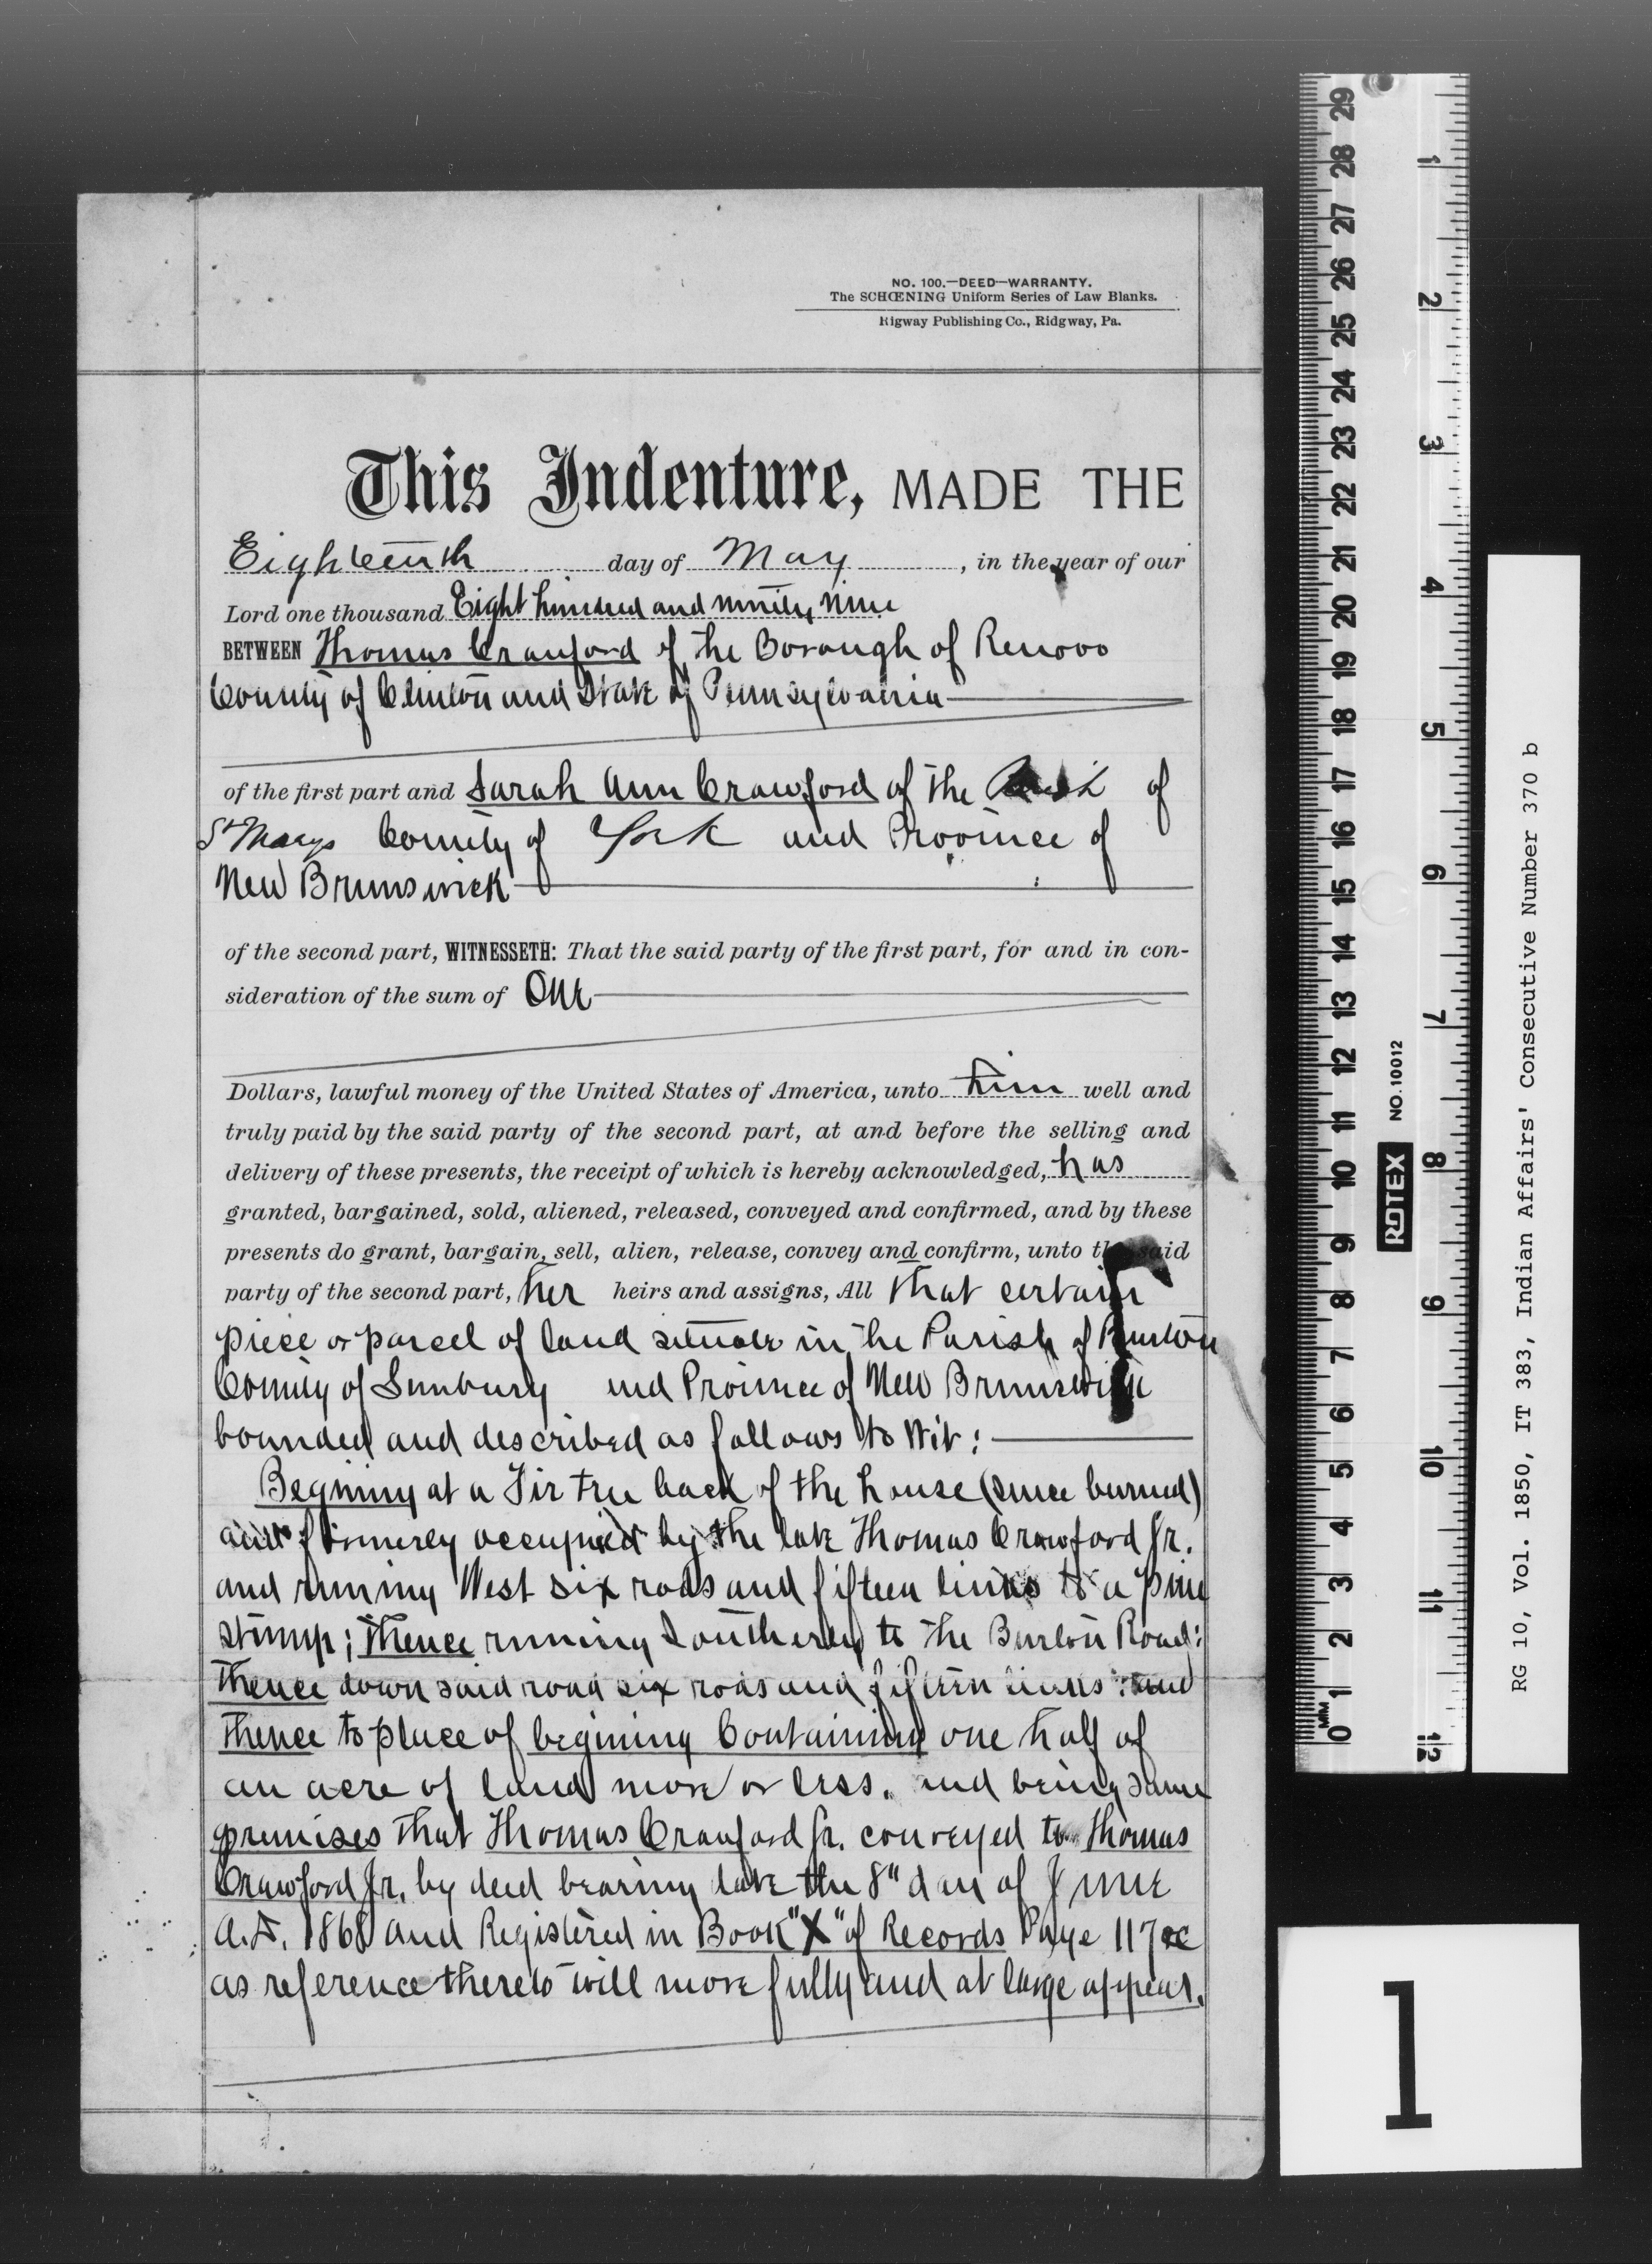 NO. 100.—DEED—WARRANTY.
The SCHŒNING Uniform Series of Law Blanks.
Rigway Publishing Co., Ridgway, Pa.
This Indenture, MADE THE
Eighteenth day of May, in the year of our
Lord one thousand Eight hundred and ninety nine
BETWEEN Thomas Crawford of the Borough of Renovo
County of Clinton and State of Pennsylvania
of the first part and Sarah Ann Crawford of the of
St Marys County of York and Province of
New Brunswick
of the second part, WITNESSETH: That the said party of the first part, for and in con-
sideration of the sum of One
Dollars, lawful money of the United States of America, unto him well and
truly paid by the said party of the second part, at and before the selling and
delivery of these presents, the receipt of which is hereby acknowledged, has
granted, bargained, sold, aliened, released, conveyed and confirmed, and by these
presents do grant, bargain, sell, alien, release, convey and confirm, unto the said
party of the second part, her heirs and assigns, All that certain
piece or parcel of land situate in the Parish of Burton
County of Sunbury and Province of New Brunswick
bounded and described as follows to wit:
Begining at a Fir tree back of the house (since burned)
and formerly occupied by the late Thomas Crawford Jr.
and running West six rods and fifteen links to a pine
stump; thence running Southerly to the Burton Road;
thence down said road six rods and fifteen links; and
thence to place of begining Containing one half of
an acre of land more or less. and being same
premises that Thomas Crawford Jr. conveyed to Thomas
Crawford Jr. by deed bearing date the 8" day of June
A.D. 1868 and Registered in Book "X" of Records Page 117
as reference thereto will more fully and at large appear.
29
28
27
26
25
24
23
22
21
20
19
18
17
16
15
14
13
12
11
10
9
8
7
6
5
4
3
2
1
0
MM
1
2
3
4
5
6
7
8
9
10
11
12
ROTEX NO. 10012
RG 10, Vol. 1850, IT 383, Indian Affairs' Consecutive Number 370 b
1